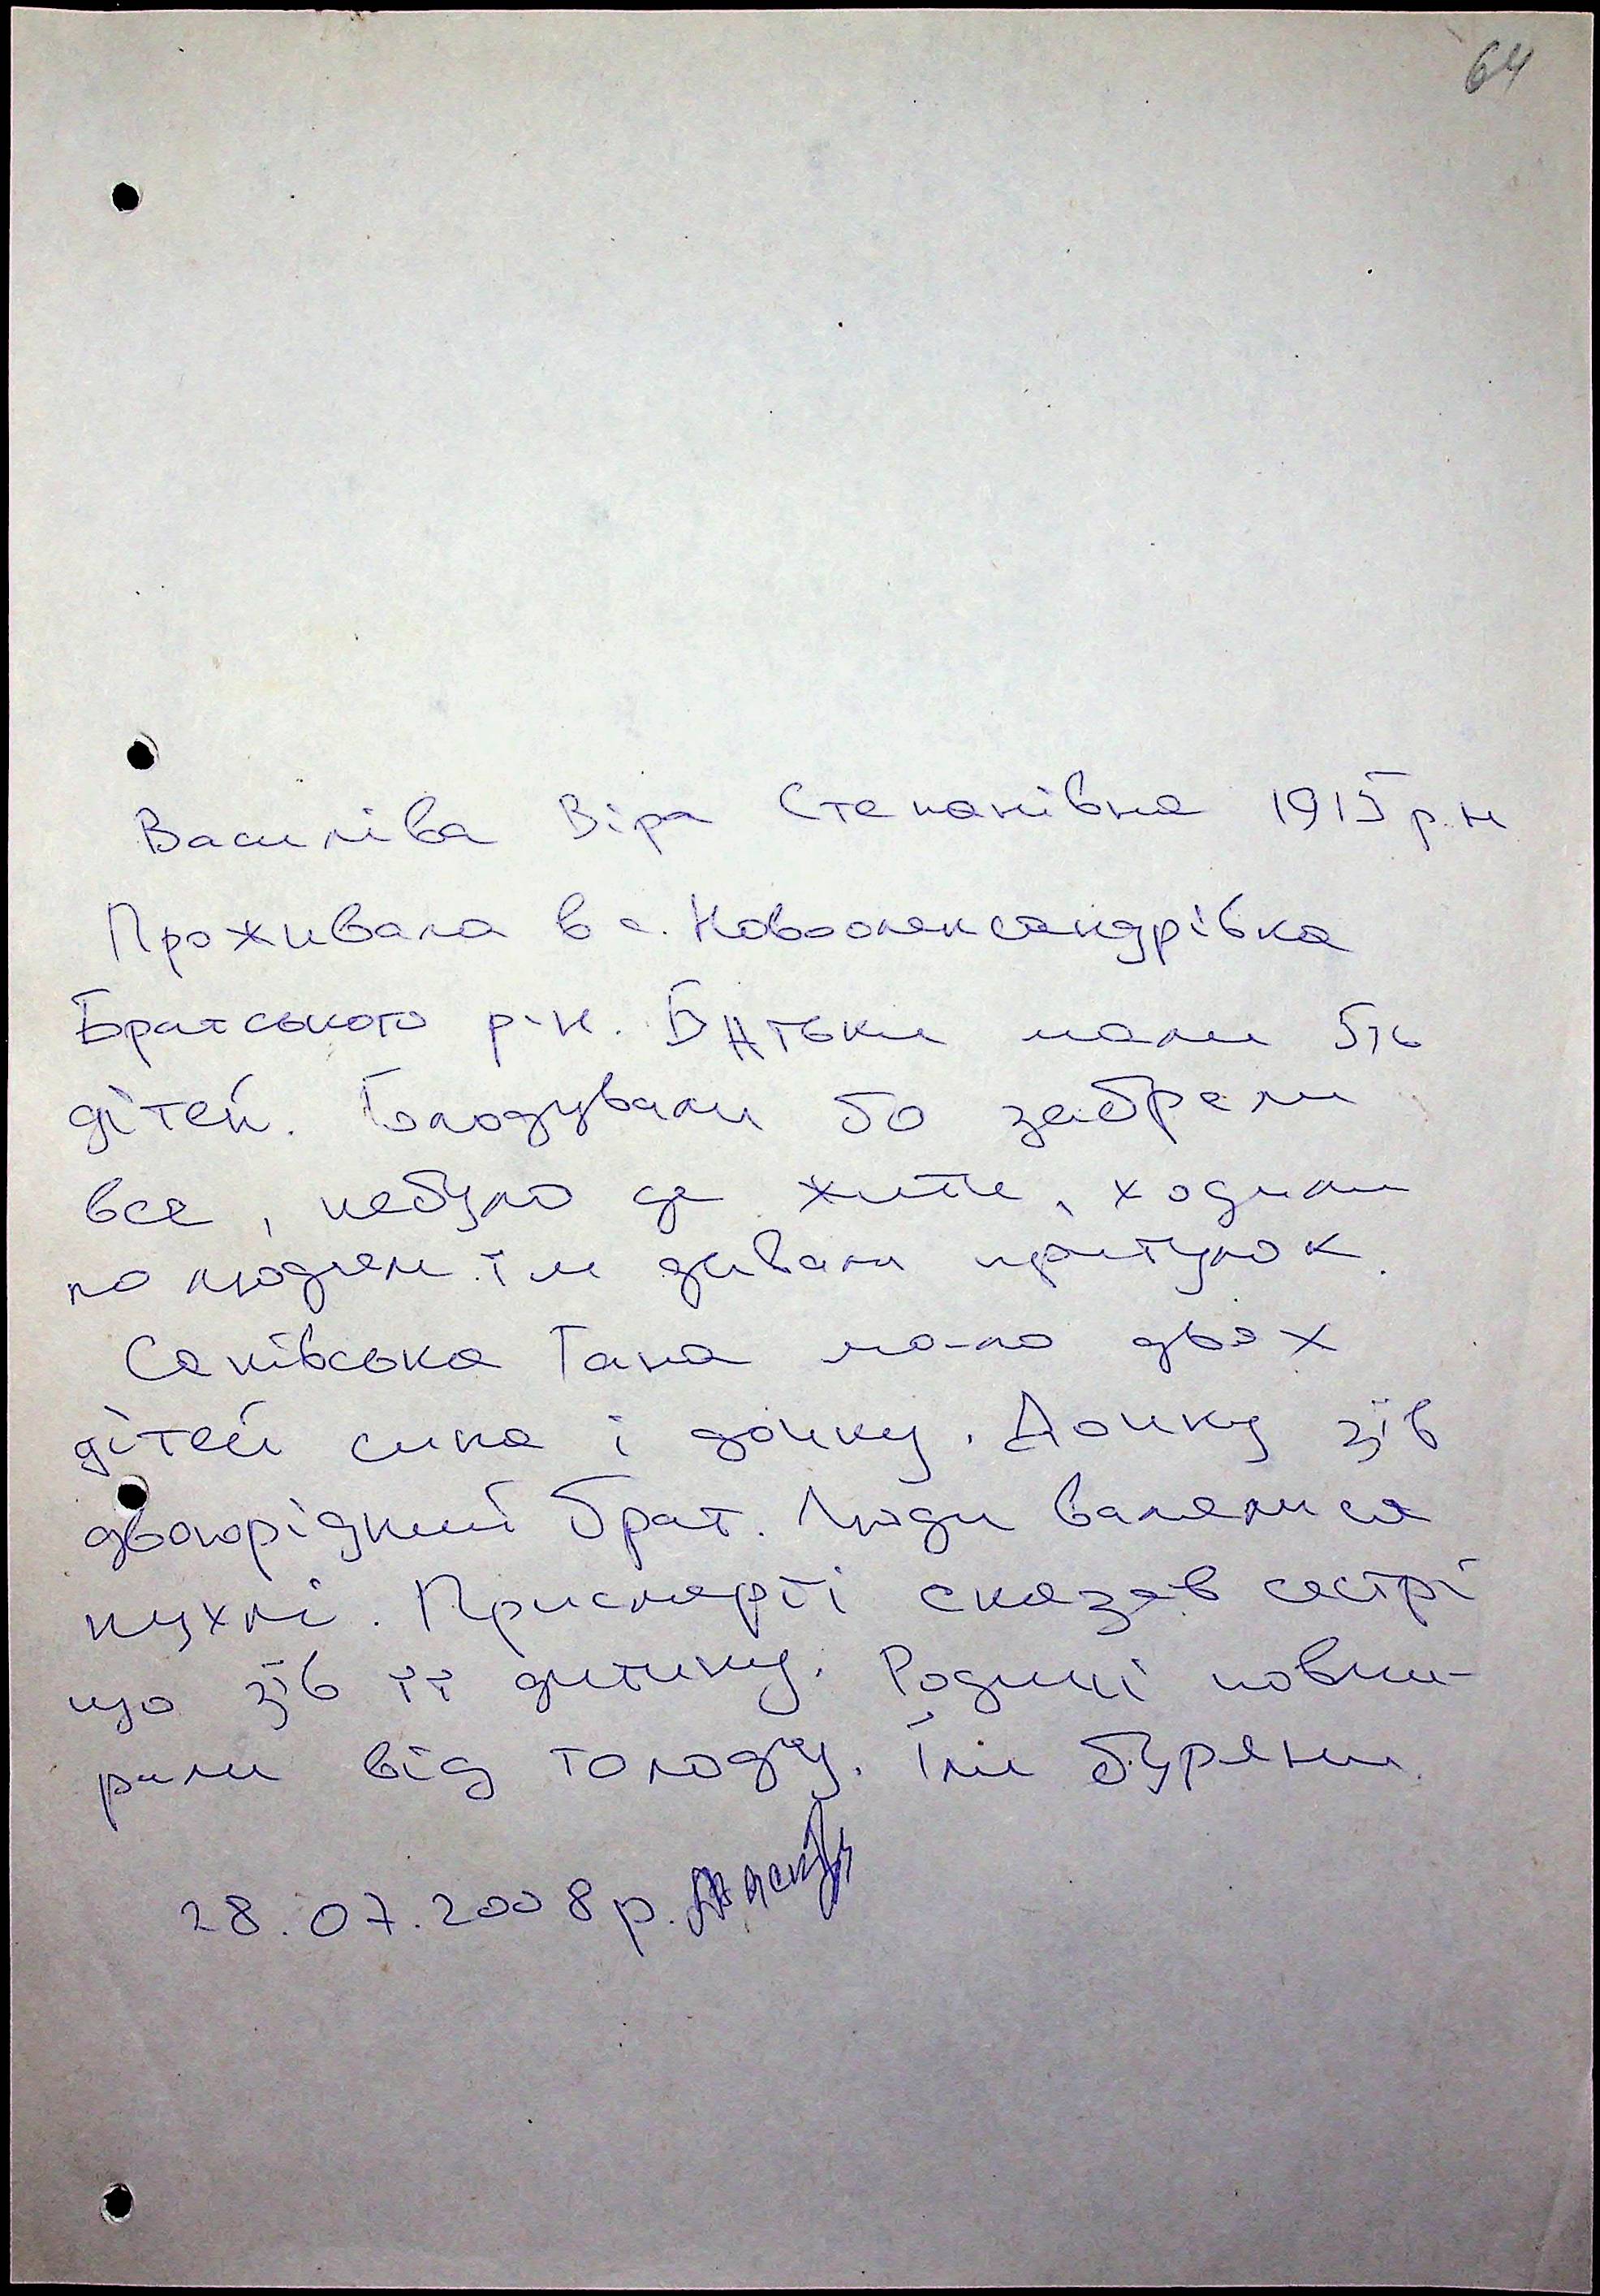 64
Василіва Віра Степанівна 1915 р.н
Проживала в с. Новоолександрівка
Братського р-н. Батьки мали 5ть
дітей. Голодували бо забрали
все, небуло де жити, ходили
по людям їм давали притулок.
Саківська Гана ма-ла двох
дітей сина і дочку. Дочку зїв
двоюрідний брат. Люди валялися
пухлі. Присмерті сказав сестрі
що зїв її дитину. Родичі повми-
рали від голоду. Їли буряни.
28.07.2008 р.